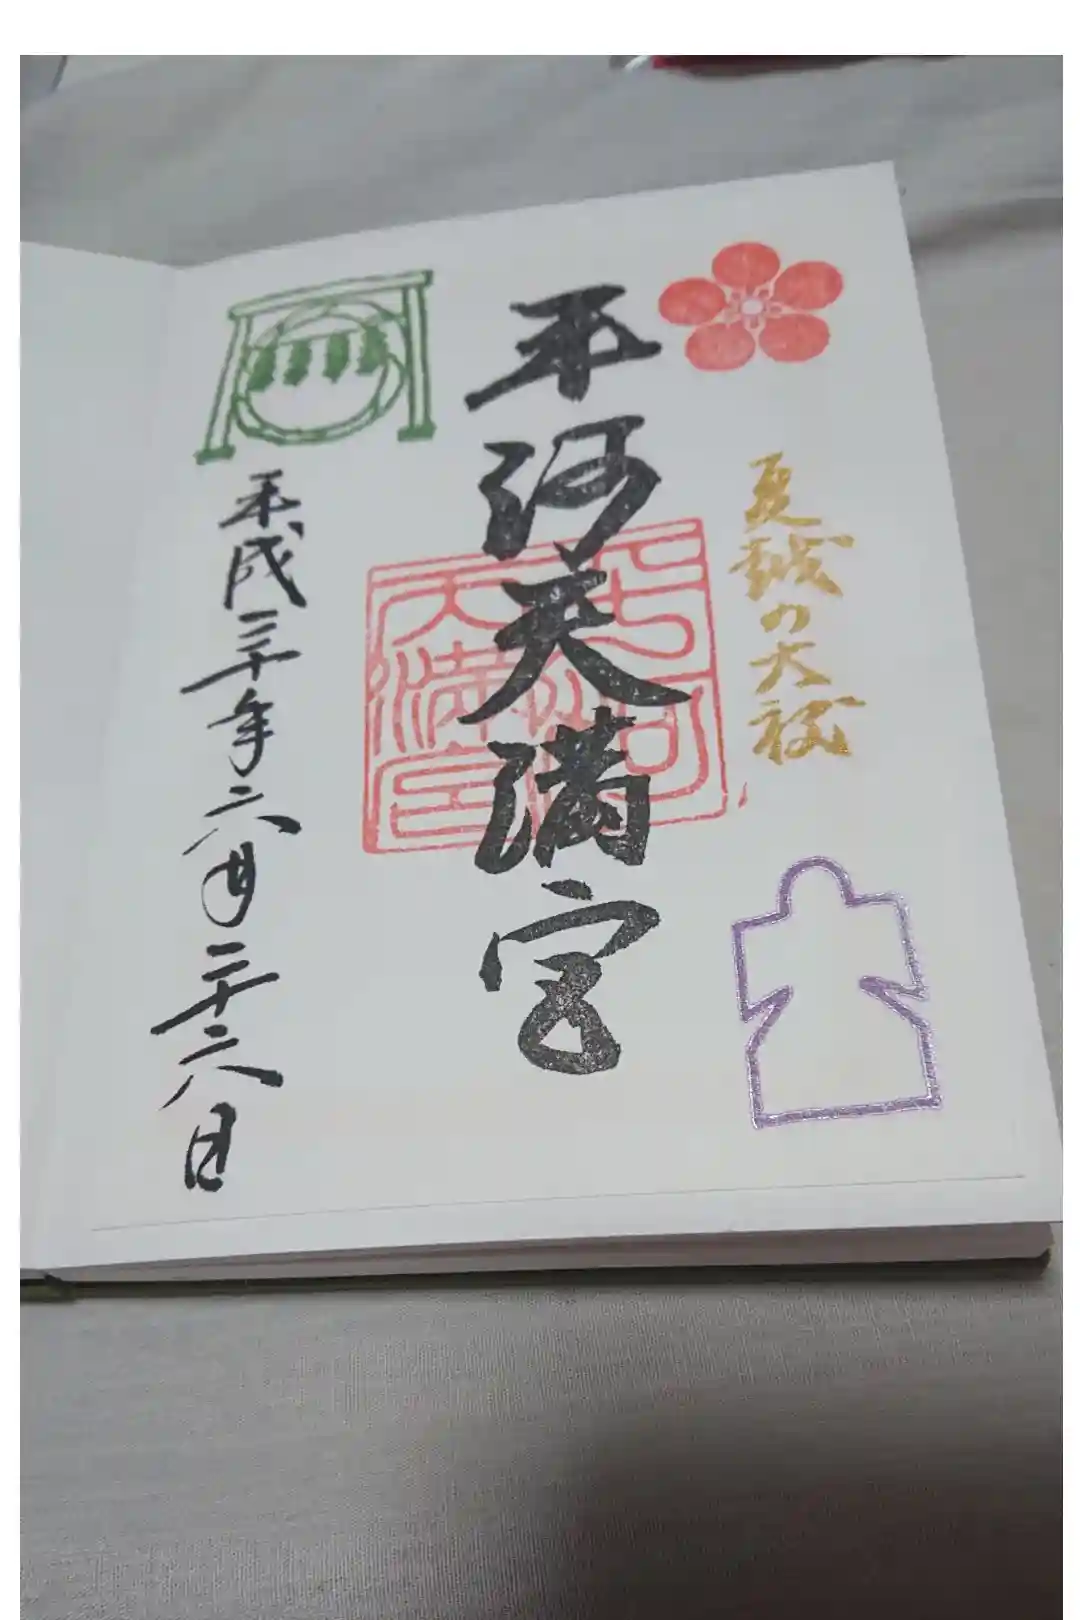 夏越の大祓
平河天満宮
平河
天満宮
平成三十年六月二十六日